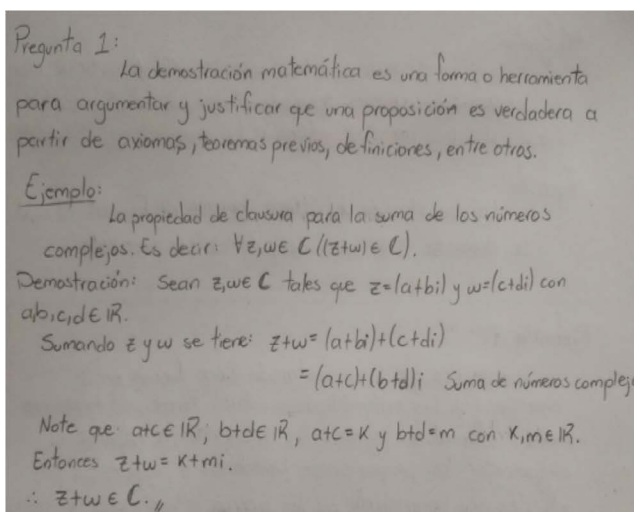 Pregunta 1:
La demostración matemática es una forma o herramienta
para argumentar y justificar que una proposición es verdadera a
partir de axiomas, teoremas previos, definiciones, entre otros.
Ejemplo:
La propiedad de clausura para la suma de los números
complejos. Es decir: ∀z,w∈ C ((z+w) ∈ C).
Demostración: Sean z,w∈ C tales que z=(a+bi) y w=(c+di) con
a,b,c,d ∈ IR.
Sumando z y w se tiene: z+w = (a+bi)+(c+di)
= (a+c)+(b+d)i Suma de números complej
Note que a+c ∈ IR, b+d ∈ IR, a+c = K y b+d=m con K,m ∈ IR.
Entonces z+w = K+mi.
∴ z+w ∈ C.,,